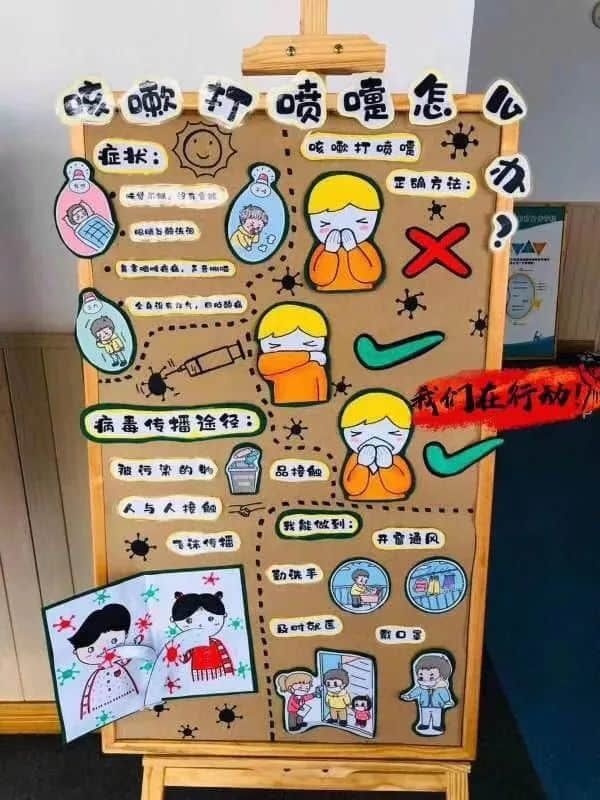 咳嗽打喷嚏怎么办?
症状:
咳嗽打喷嚏
正确方法:
全身没有力气,四肢酸痛
我们在行动!
病毒传播途径:
被污染的物品接触
人与人接触
飞沫传播
我能做到:
开窗通风
勤洗手
及时就医
戴口罩